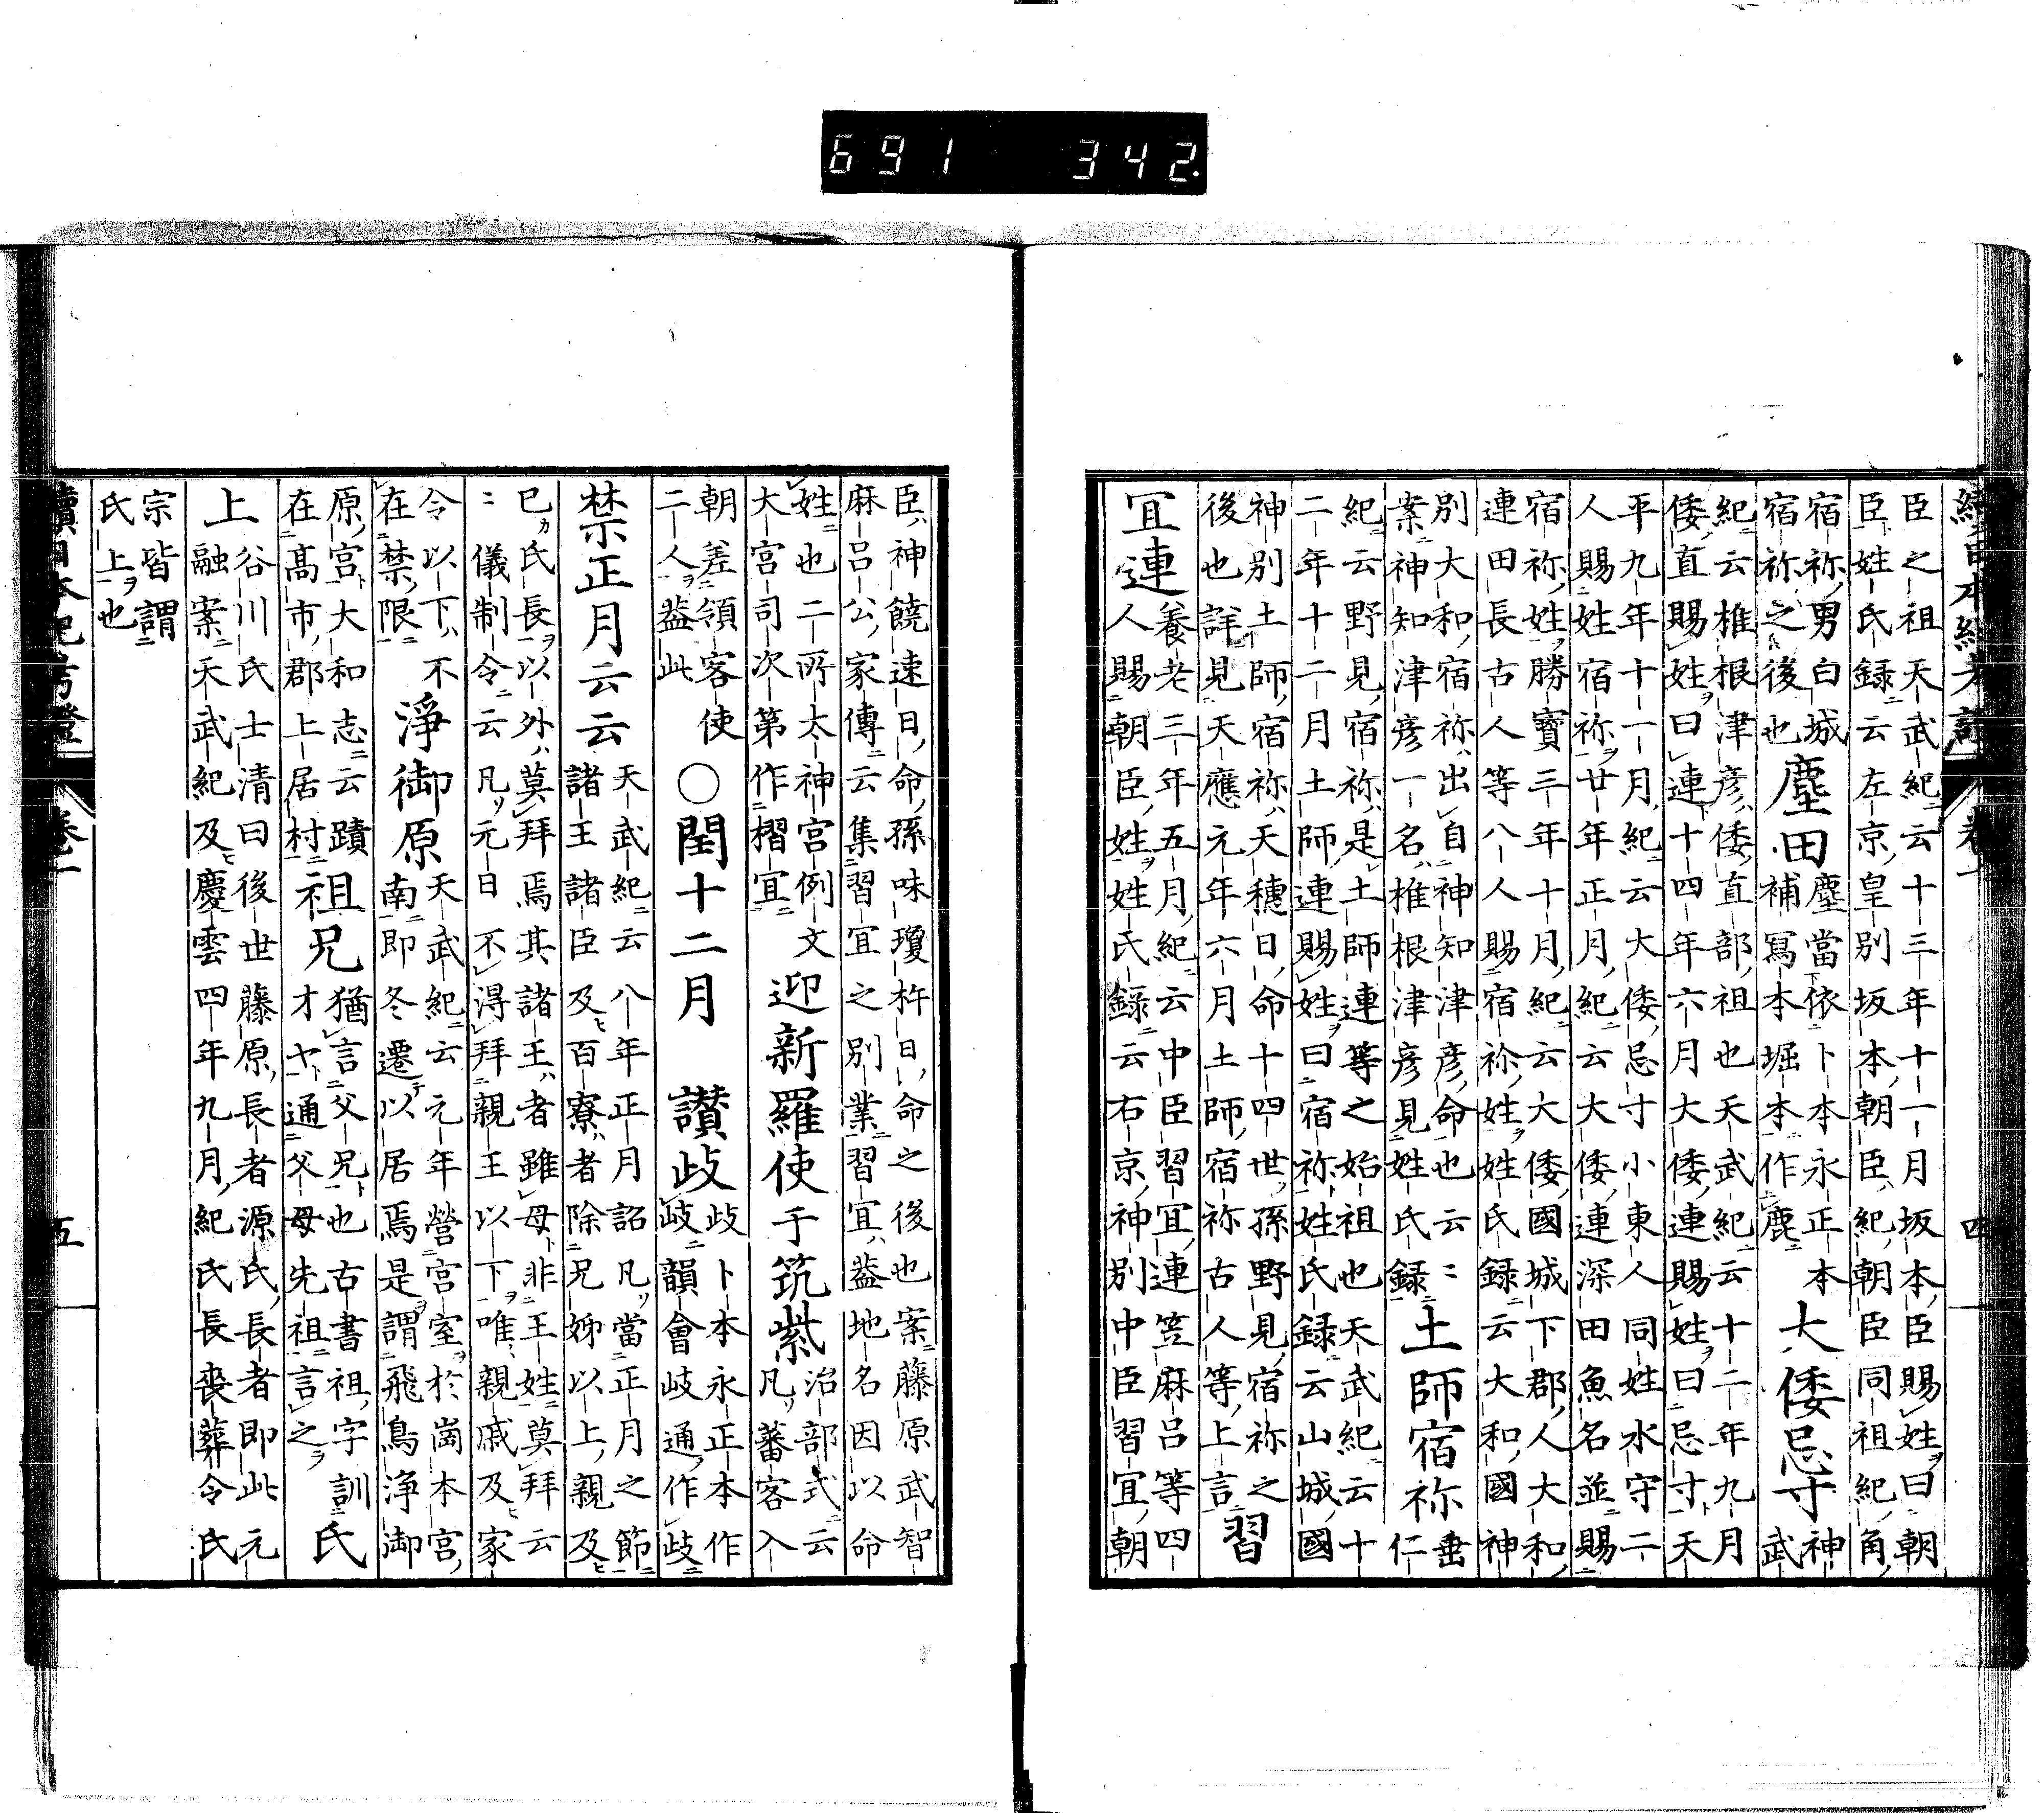 691 342.
續日本紀考證 卷一 四
臣之祖天武紀云十三年十一月坂本臣賜姓曰朝
臣姓氏録云左京皇別坂本朝臣紀朝臣同祖紀角
宿祢男白城
宿祢之後也
塵田
塵當依卜本永正本
補寫本堀本作鹿
大倭忌寸
神
武
紀云椎根津彦倭直部祖也天武紀云十二年九月
倭直賜姓曰連十四年六月大倭連賜姓曰忌寸天
平九年十一月紀云大倭忌寸小東人同姓水守二
人賜姓宿祢廿年正月紀云大倭連深田魚名並賜
宿祢姓勝寶三年十月紀云大倭國城下郡人大和
連田長古人等八人賜宿祢姓姓氏録云大和國神
別大和宿祢出自神知津彦命也云〻
案神知津彦一名椎根津彦見姓氏録
土師宿祢
垂
仁
紀云野見宿祢是土師連等之始祖也天武紀云十
二年十二月土師連賜姓曰宿祢姓氏録云山城國
神別土師宿祢天穗日命十四世孫野見宿祢之
後也詳見天應元年六月土師宿祢古人等上言
習
宜連
養老三年五月紀云中臣習宜連笠麻呂等四
人賜朝臣姓姓氏録云右京神別中臣習宜朝
臣神饒速日命孫味瓊杵日命之後也案藤原武智
麻呂公家傳云集習宜之別業習宜蓋地名因以命
姓也二所太神宮例文
大宮司次第作褶宜
迎新羅使于筑紫
治部式云
凡蕃客入
朝差領客使
二人蓋此
○閏十二月
讃歧
歧卜本永正本作
岐韻會岐通作歧
禁正月云云
天武紀云八年正月詔凡當正月之節
諸王諸臣及百寮者除兄姊以上親及
巳氏長以外莫拜焉其諸王者雖母非王姓莫拜云
〻儀制令云凡元日不得拜親王以下唯親戚及家
令以下不
在禁限
淨御原
天武紀云元年營宮室於崗本宮
南即冬遷以居焉是謂飛鳥淨御
原宮大和志云蹟
在高市郡上居村
祖兄
猶言父兄也古書祖字訓
オヤ通父母先祖言之
氏
上
谷川氏士清曰後世藤原長者源氏長者即此元
融案天武紀及慶雲四年九月紀氏長喪葬令氏
宗皆謂
氏上也
續日本紀考證 卷一 五